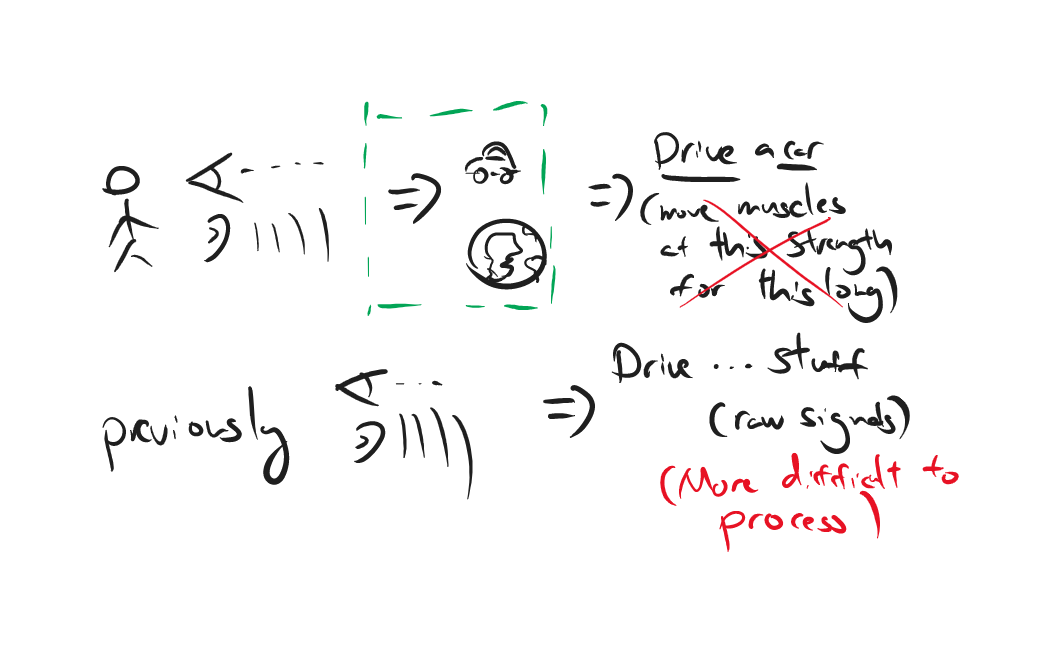 Drive a car
(move muscles
at this strength
for this long)
previously
Drive ... stuff
(raw signals)
(More difficult to
process)